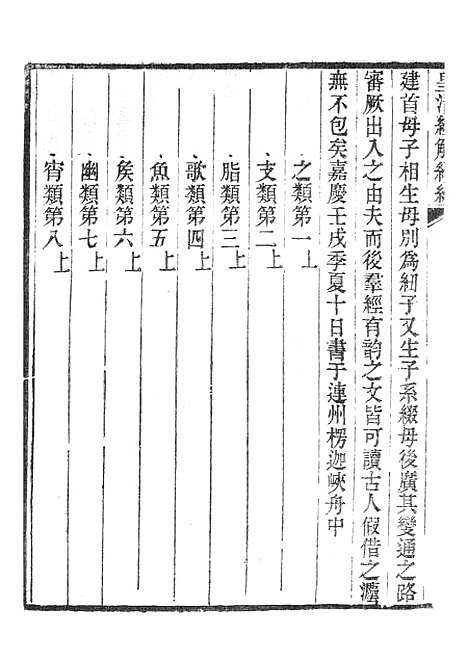 皇清經解續編
建首母子相生母別爲紐子又生子系綴母後廣其變通之路
審厥出入之由夫而後羣經有韵之文皆可讀古人假借之灋
無不包矣嘉慶壬戌季夏十日書于連州楞迦峽舟中
之類第一上
支類第二上
脂類第三上
歌類第四上
魚類第五上
矦類第六上
幽類第七上
宵類第八上